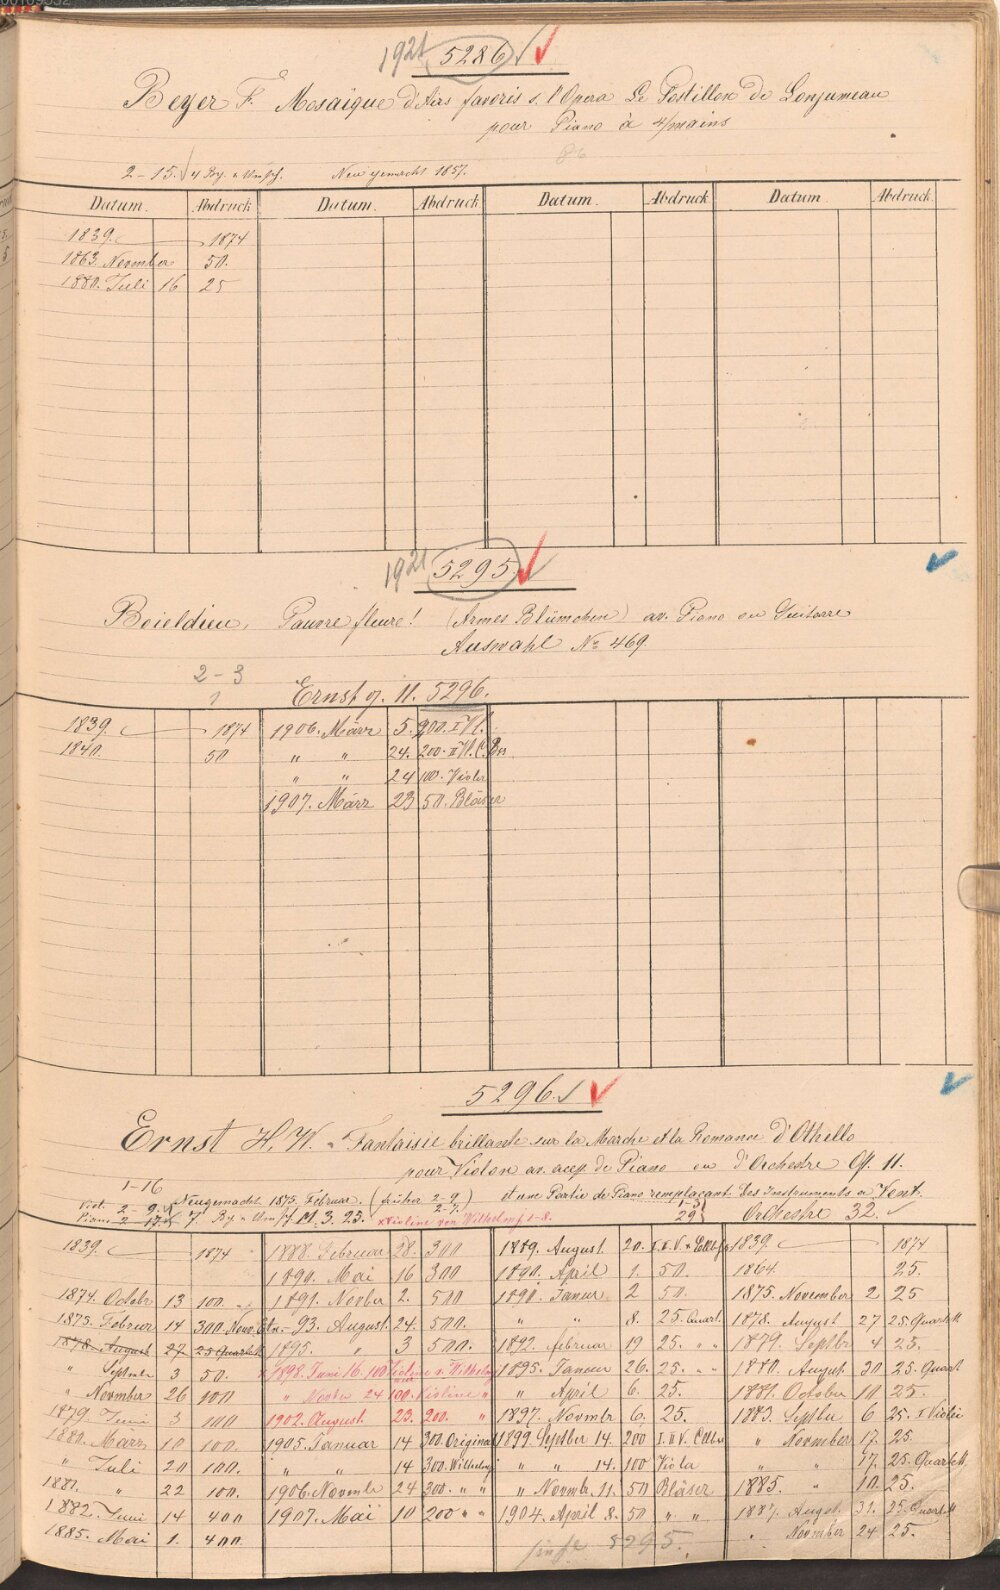 1921 5286
Beyer F. Mosaïque d'Airs favoris s. l'Opera Le Postillon de Lonjumeau
pour Piano à 4/mains
2-15. Neu gemacht 1857.
Datum. Abdruck Datum. Abdruck Datum. Abdruck Datum. Abdruck
1839. 1874
1863. November 50.
1880. Juli 16 25
1921 5295
Boieldieu, Pauvre fleure! (Armes Blümchen) av. Piano ou Guitarre
Auswahl No 469.
2-3
1
Ernst op. 11. 5296.
1839. 1874 1906. März 5. 200. I Vl.
1840. 50 " " 24. 200. II Vl. C. Bss
" " 24 100. Viola
1907. März 23 50. Bläser
5296.
Ernst H. W. Fantaisie brillante sur la Marche et la Romance d'Othello
pour Violon av. accp de Piano ou d'Orchestre Op. 11.
1-16
Viol. 2-9. Neugemacht 1875. Februar. (früher 2-9. 2-7.) et une Partie de Piano remplaçant les Instruments a Vent.
Piano 2-17. 7 M. 3. 25. x Violine von Wilhelmj 1-8. 29 Orchestre 32.
1839. 1874 1888. Februar 28. 300 1889. August. 20. 1839. 1874
1890. Mai 16 300 1890. April 1. 50. 1864. 25.
1874. Octobr 13 100. 1891. Novbr 2. 500 1891. Januar 2 50. 1875. November 2 25
1875. Februar 14 300 93. August. 24. 500. " " 8. 25. Quart. 1878. August 27 25. Quartett
1878. August 27 25 Quartett 1895. " 3 500. 1892. februar 19 25. " " 1879. Septbr 4 25.
" Septmbr 3 50. x 1898. Juni 16. 100 Violine v. Wilhelmj 1895. Januar 26. 25. " " 1880. August. 30 25. Quart
" Novmber 26 100 " Novbr 24 100. Violine " " April 6. 25. 1881. October 10 25.
1879. Juni 3 100 1902. August. 23. 200. " 1897. Novmbr 6. 25. 1883. Septbr 6 25. I Violi
1880. März 10 100. 1905. Januar 14 300. Original 1899. Septber 14. 200 I. II V. Cello " November 17. 25.
" Juli 20 100. " " 14 300. Wilhelmj " " 14. 100 Viola " " 17. 25. Quartett
1881. " 22 100. 1906. Novmbr 24 300. " " " Novmb. 11. 50 Bläser 1885. " 10. 25.
1882. Juni 14 400 1907. Mai 10 200 " " 1904. April 8. 50 " " 1887. August. 31. 25. Quartett
1885. Mai 1. 400. siehe 5295. " November 24 25.